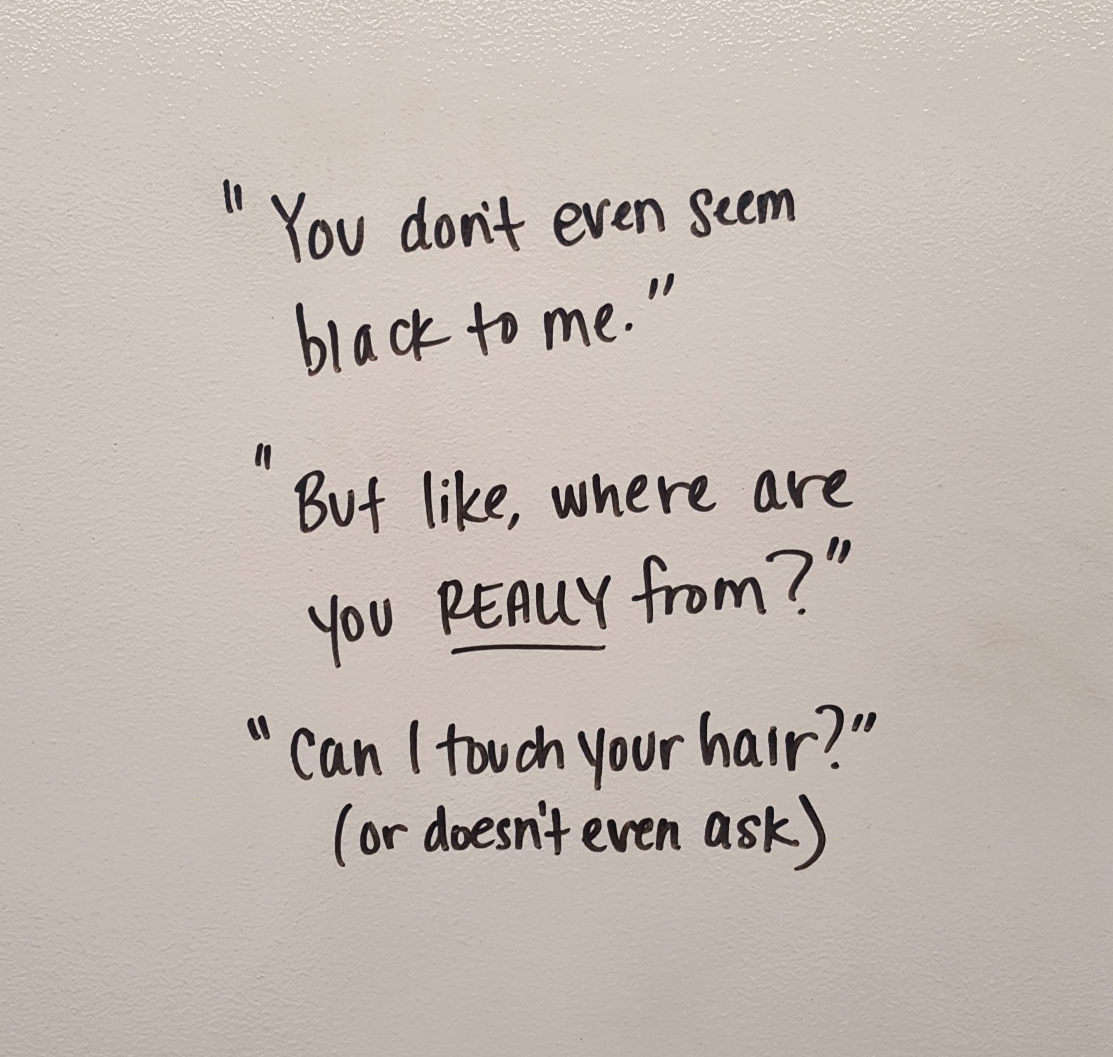 "You don't even seem
black to me."
"But like, where are
you REALLY from?"
"Can I touch your hair?"
(or doesn't even ask)